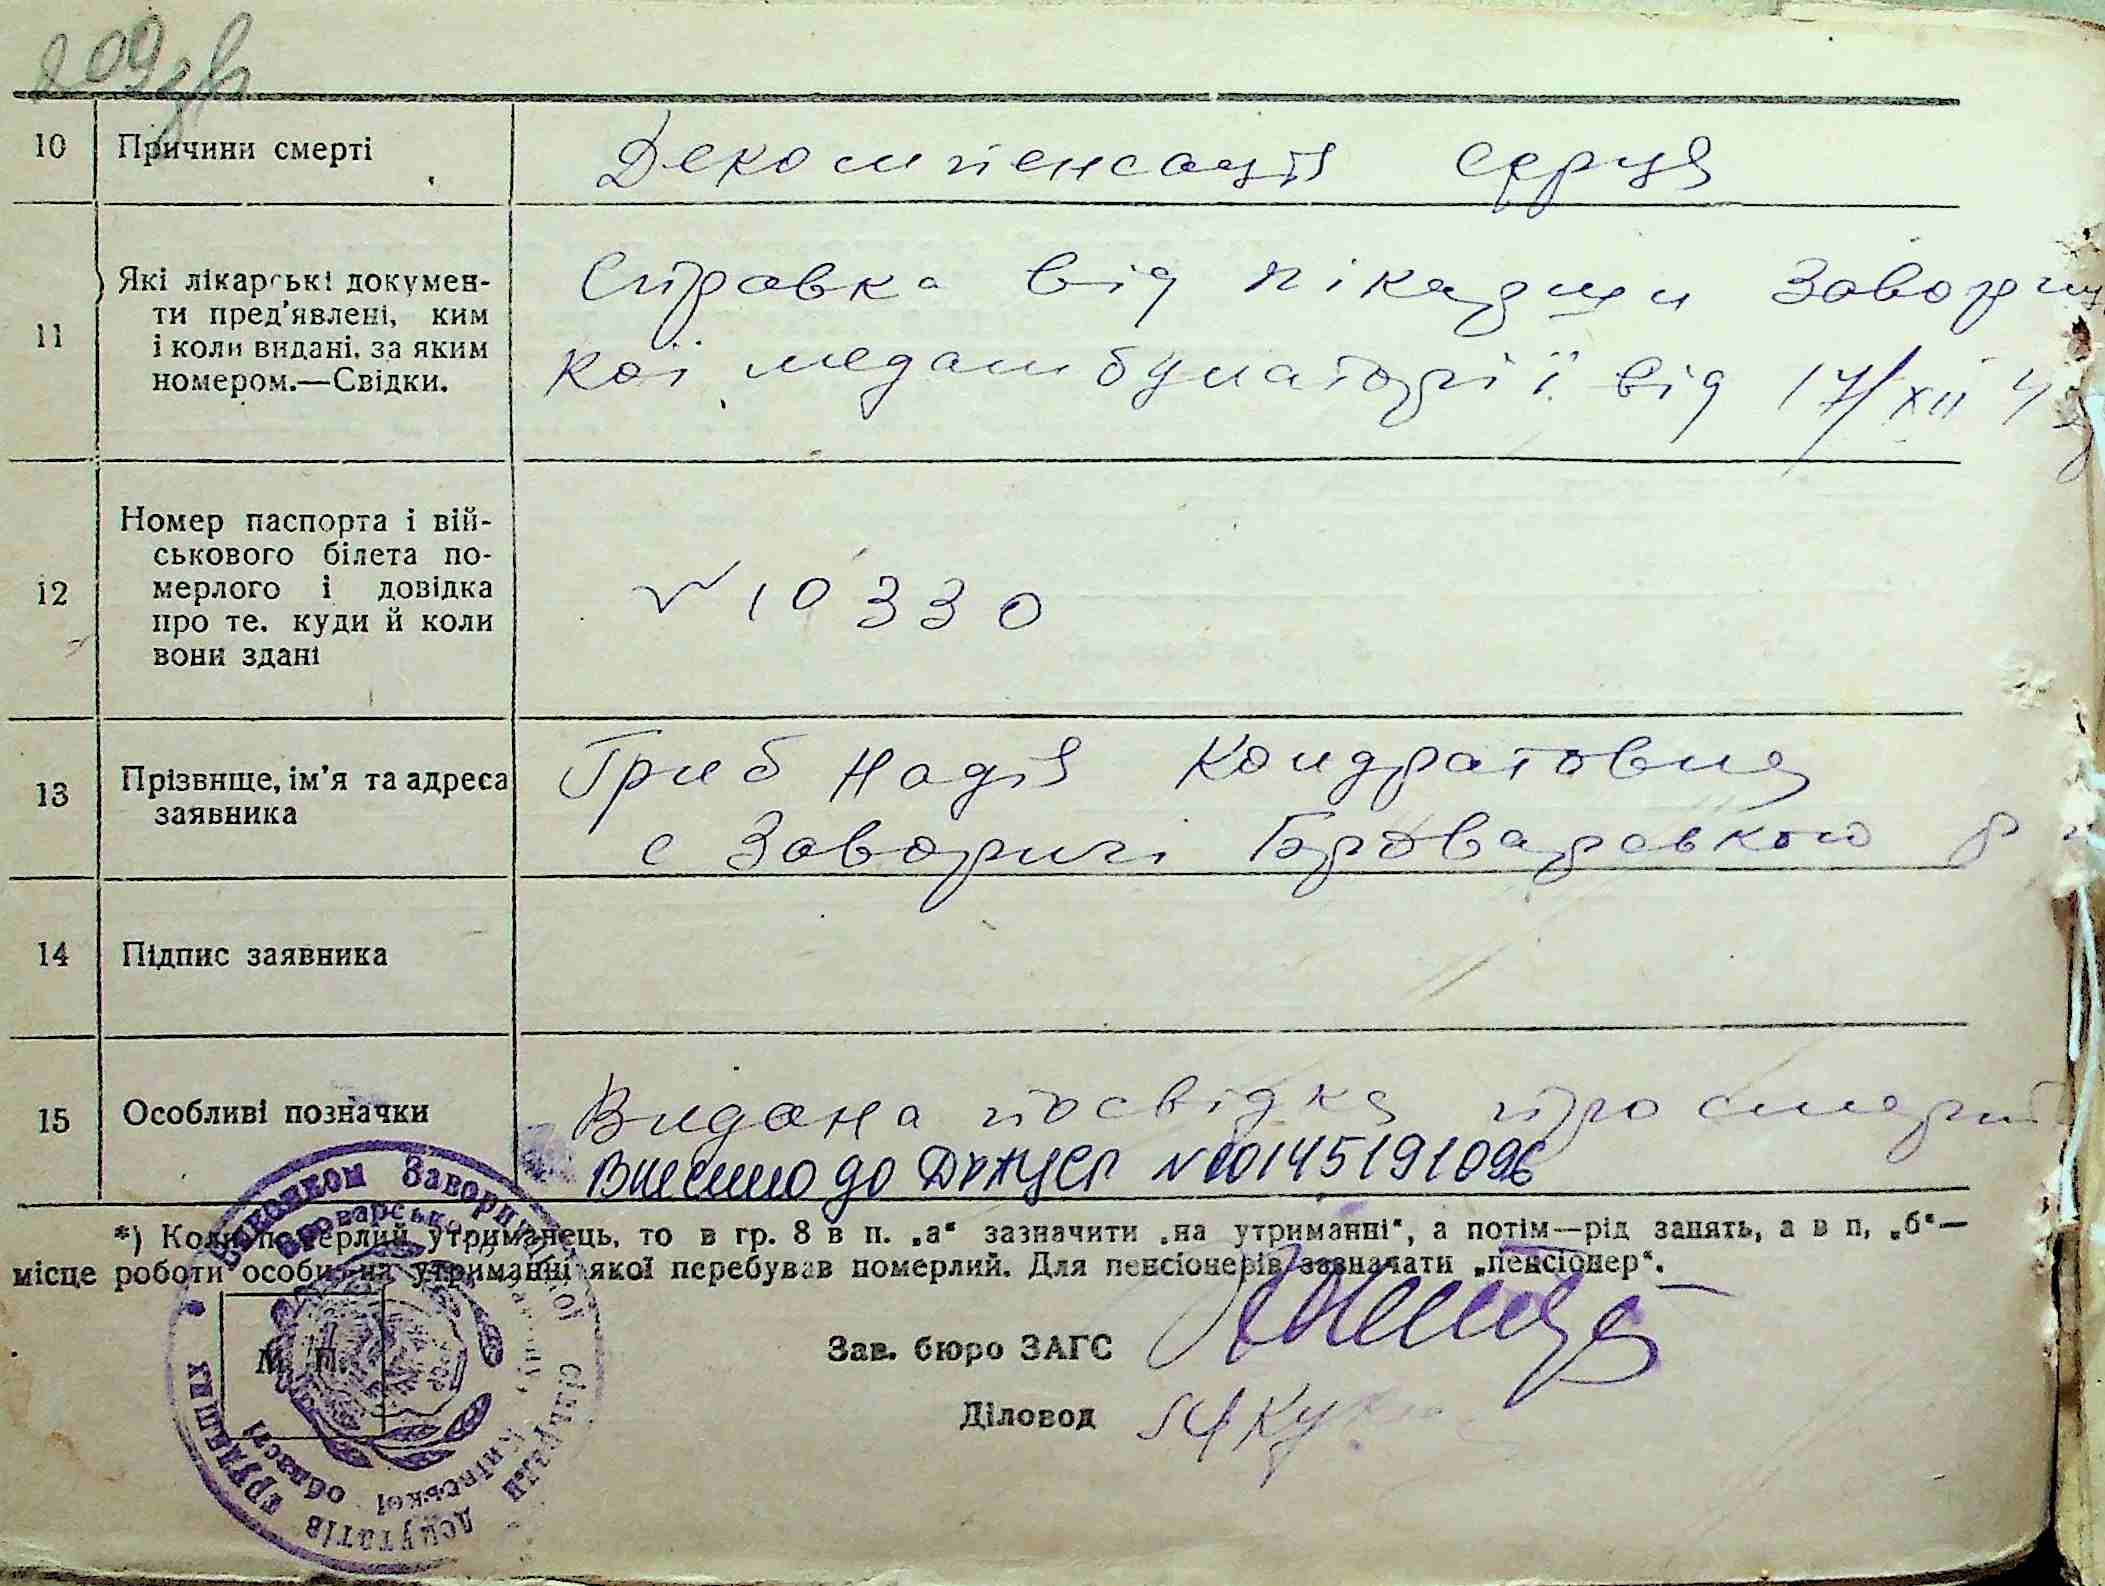 209 зв
10 Причини смерті Декомпенсація серця
11 Які лікарські докумен-
ти пред'явлені, ким
і коли видані, за яким
номером.—Свідки.
Справка від лікарихи Заворицы
кої медамбулаторії від 17/XII 4
12 Номер паспорта і вій-
ськового білета по-
мерлого і довідка
про те. куди й коли
вони здані
№ 10330
13 Прізвище, ім'я та адреса
заявника
Гриб Надія Кондратовна
с Заворичі Броварського р н
14 Підпис заявника
15 Особливі позначки
Видана посвідка про смерть
Внесено до ДРАЦСГ №00145191096
*) Коли померлий утриманець, то в гр. 8 в п. „а“ зазначити „на утриманні“, а потім—рід занять, а в п, „б“—
місце роботи особи, на утриманні якої перебував померлий. Для пенсіонерів зазначати „пенсіонер“.
Виконком Заворицької сільради депутатів трудящих
Броварського району, Київської області
М. П.
Зав. бюро ЗАГС
Діловод